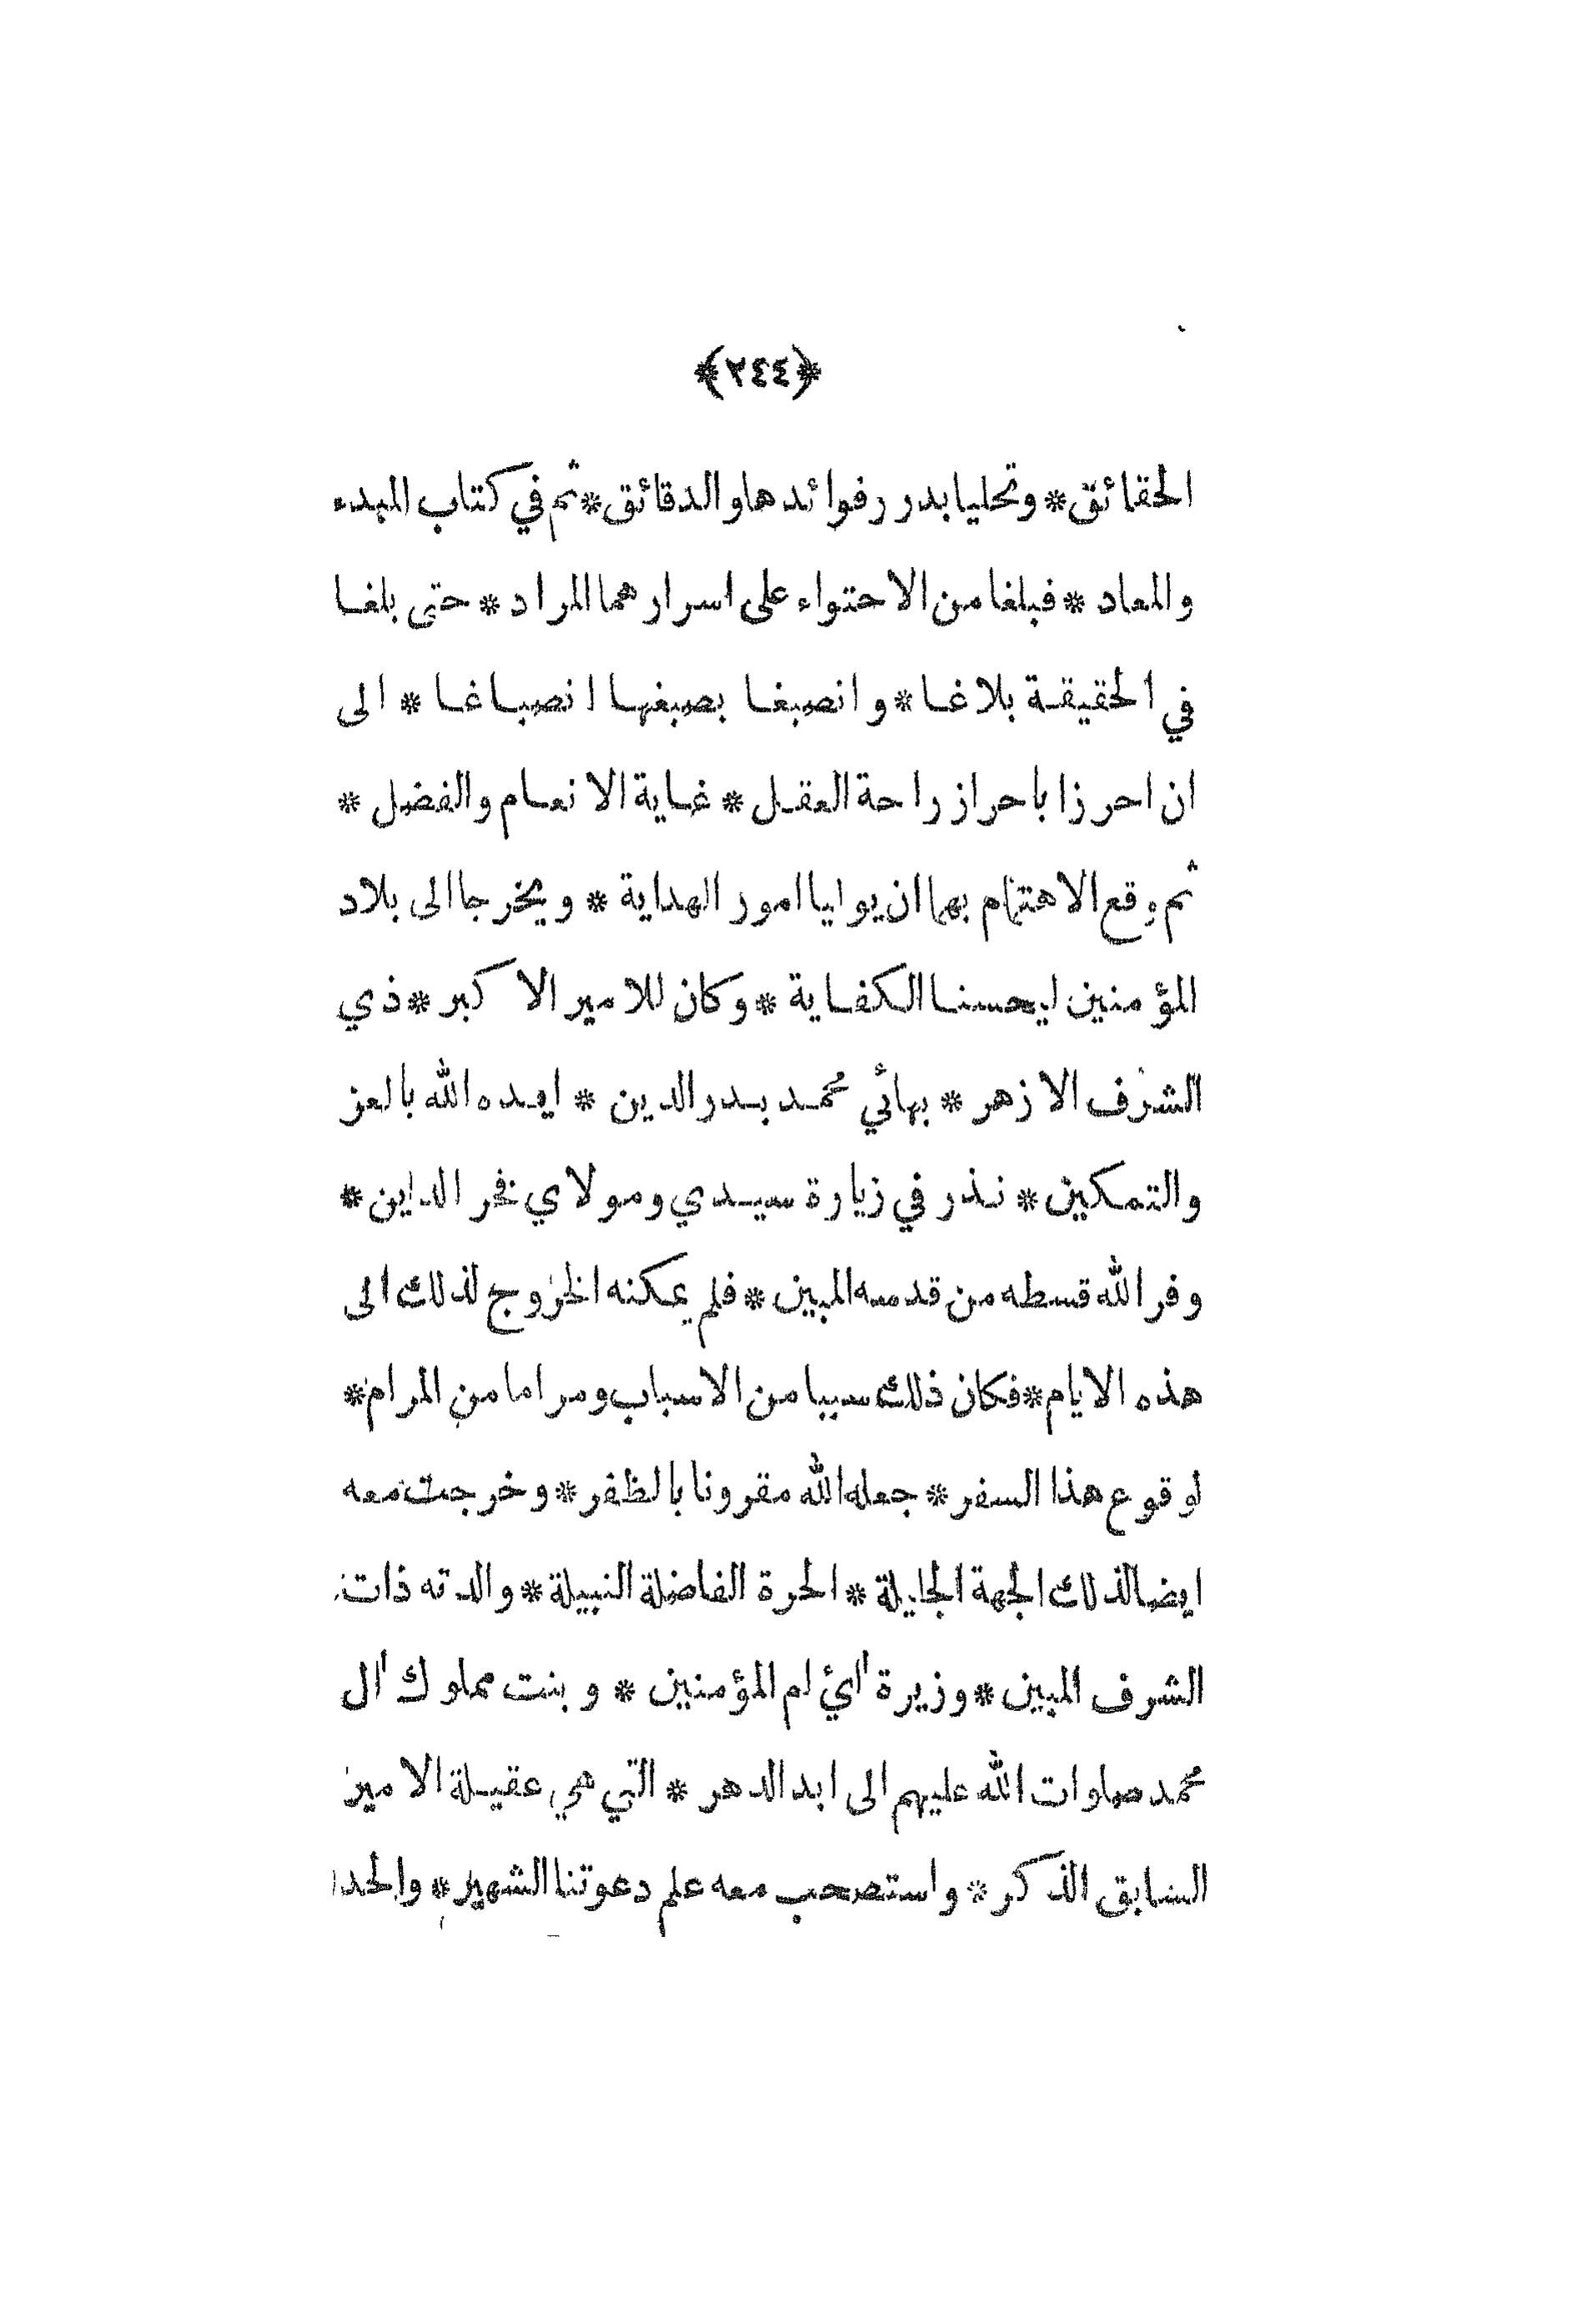 ﴿٢٤٤﴾
الحقائق * وتحليا بدرر فوائدها والدقائق * ثم في كتاب المبدء
والمعاد * فبلغا من الاحتواء على اسرارهما المراد * حتى بلغا
في الحقيقة بلاغا * وانصبغا بصبغها انصباغا * الى
ان احرزا بأحراز راحة العقل * غاية الانعام والفضل *
ثم وقع الاهتمام بهما ان يواليا امور الهداية * ويخرجا الى بلاد
المؤمنين ليحسنا الكفاية * وكان للامير الاكبر * ذي
الشرف الازهر * بهائي محمد بدر الدين * ايده الله بالعز
والتمكين * نذر في زيارة سيدي ومولاي فخر الدين *
وفر الله قسطه من قدسه المبين * فلم يمكنه الخروج لذلك الى
هذه الايام * فكان ذلك سببا من الاسباب ومراما من المرام *
لوقوع هذا السفر * جعله الله مقرونا بالظفر * وخرجت معه
ايضا لذلك الجهة الجليلة * الحرة الفاضلة النبيلة * والدته ذات
الشرف المبين * وزيرة اي ام المؤمنين * وبنت مملوك ال
محمد صلوات الله عليهم الى ابد الدهر * التي هي عقيلة الامير
السابق الذكر * واستصحب معه علم دعوتنا الشهير *